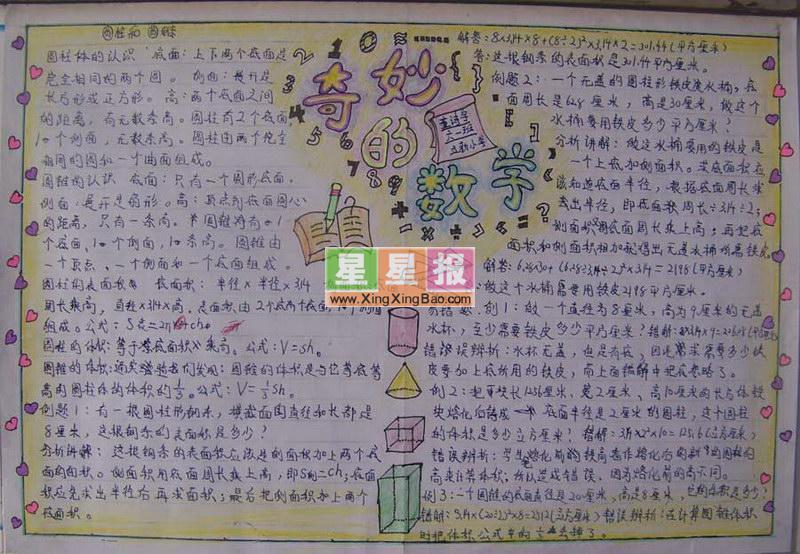 圆柱和圆锥
圆柱体的认识 底面：上下两个底面是
完全相同的两个圆。侧面：展开是
长方形或正方形。高：两个底面之间
的距离，有无数条高。圆柱有2个底面
1个侧面，无数条高。圆柱由两个完全
相同的圆和一个曲面组成。
圆锥的认识 底面：只有一个圆形底面，
侧面：展开是扇形。高：顶点到底面圆心
的距离，只有一条高。圆锥有1
个底面，1个侧面，1条高。圆锥由
一个顶点、一个侧面和一个底面组成。
圆柱的表面积 底面积：半径×半径×3.14
周长乘高，直径×3.14×高，表面积由2个底面
组成。公式：
圆柱的体积：等于底面积乘高。公式：V=Sh。
圆锥的体积：通过实验我们发现：圆锥的体积是与它等底等
高的圆柱体的体积的1/3。公式：V=1/3Sh。
例题1：有一根圆柱形钢条，横截面圆直径和长都是
8厘米，这根钢条的表面积是多少？
分析讲解：这根钢条的表面积应该是侧面积加上两个底
面的面积。侧面积用底面周长乘上高，即S侧=Ch；底面
积应先求出半径后再求面积；最后把侧面积加上两个
底面积。
奇妙的数学
星星报
www.XingXingBao.com
解答：8×3.14×8+(8÷2)²×3.14×2=301.44(平方厘米)
答：这根钢条的表面积是301.44平方厘米。
例题2：一个无盖的圆柱形铁皮水桶，底
面周长是628厘米，高是30厘米，做这个
水桶要用铁皮多少平方厘米？
分析讲解：做这水桶要用的铁皮是
一个上底加侧面积。求底面积应
该知道底面半径，根据底面周长求
出半径，即底面周长÷3.14÷2；
侧面积用底面周长乘上高；再把底
面积和侧面积相加就得出无盖水桶所需铁皮
解答：
做这个水桶需要用铁皮
例1：做一个直径为8厘米，高为9厘米的无盖
水杯，至少需要铁皮多少平方厘米？错解：
错误辨析：水杯无盖，但是有底，因还需求需要多少铁
皮要加上底所用的铁皮，而上面错解中把底忽略了。
例2：把家长1256厘米、宽2厘米、高10厘米的长方体铁
块熔化后铸成一个底面半径是2厘米的圆柱，这个圆柱
的体积是多少立方厘米？错解：3.14×2²×10=125.6(立方厘米)
错误辨析：学生把熔化前的铁高当作熔化后的圆柱的
高来计算体积，所以造成错误，因为熔化前后的高不同。
例3：一个圆锥的底面直径是20厘米，高是8厘米，它的体积是多少？
错解：3.14×(20÷2)²×8=2512(立方厘米) 错误辨析：在计算圆锥体积
时把体积公式中的1/3丢掉了。